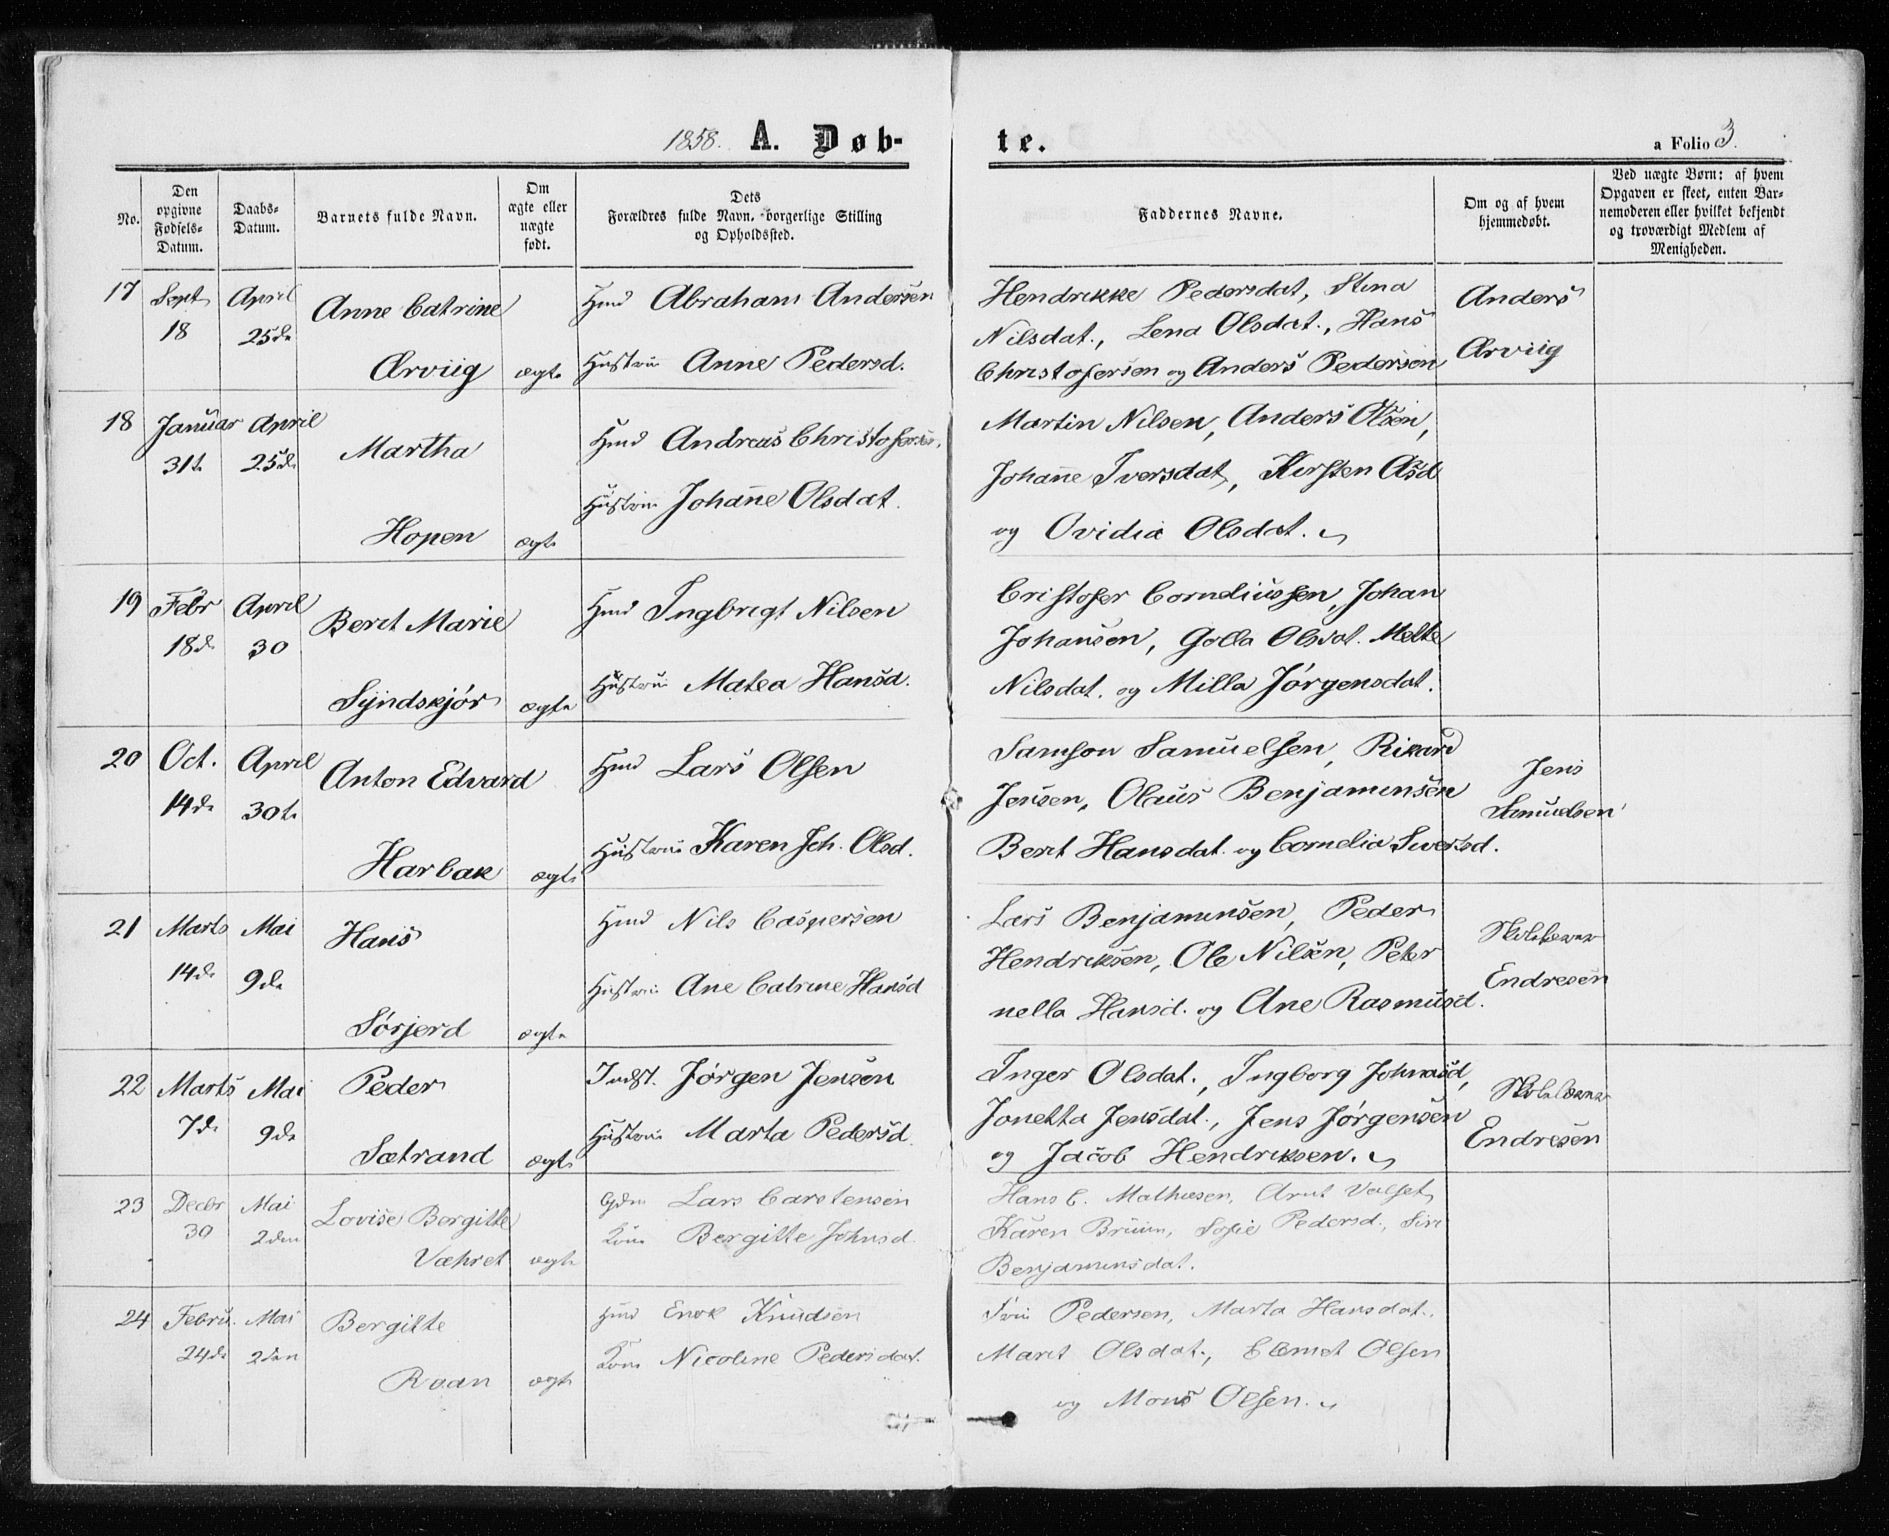 1858. A. Døb-
te. a Folio 3.
No.
Den opgivne Fødsels-Datum.
Daabs-Datum.
Barnets fulde Navn.
Om ægte eller uægte født.
Dets Forældres fulde Navn, borgerlige Stilling og Opholdssted.
Faddernes Navne.
Om og af hvem hjemmedøbt.
Ved uægte Børn: af hvem Opgaven er skeet, enten Barnemoderen eller hvilket bekjendt og troværdigt Medlem af Menigheden.
17 Sept April Anne Catrine Hmd Abraham Andersen Hendrikke Pedersdat, Stina Anders
18 25de Nilsdat., Lena Olsdat., Hans
Ærviig ægte Hustrue Anne Pedersd. Christofersen og Anders Pedersen Ærviig
18 Januar April Martha Hmd Andreas Christofersen. Martin Nilsen, Anders Olsen,
31te 25de Hustrue Johanne Olsdat. Johanne Iversdat, Kirsten Aasd
Hopen ægte og Ovidia Olsdat.
19 Febr April Berit Marie Hmd Ingbrigt Nilsen Cristofer Corneliussen, Johan
18de 30 Johansen, Golla Olsdat. Mette
Syndskjør ægte Hustrue Matea Hansd. Nilsdat. og Milla Jørgensdat.
20 Oct. April Anton Edvard Hmd Lars Olsen Samson Samuelsen, Rikard Jens
14de 30te Jensen, Olaus Benjaminsen Samuelsen
Harbak ægte Hustrue Karen Joh. Olsd. Berit Hansdat. og Cornelia Sivertsd.
21 Marts Mai Hans Hmd Nils Caspersen Lars Benjaminsen, Peder Skolelærer
14de 9de Hustrue Ane Catrine Hansd Hendriksen, Ole Nilsen, Peter Endresen
Sørjerd ægte nella Hansd. og Ane Rasmusd.
22 Marts Mai Peder Indst. Jørgen Jensen Inger Olsdat., Ingborg Johnasd, Skolelærer
7de 9de Hustrue Marta Pedersd. Jonetta Jensdat., Jens Jørgensen Endresen
Sætrand ægte og Jacob Hendriksen.
23 Decbr Mai Lovise Bergitte Gdm Lars Carstensen Hans C. Mathiesen, Arnt Valset
30 2den Kone Bergitte Johnsd. Karen Bruun, Sofie Pedersd., Siri
Væhret ægte Benjaminsdat.
24 Febru. Mai Bergitte Hmd Enok Knudsen Pedersen, Marta Hansdat.,
24de 2den Kone Nicoline Pedersdat. Marit Olsdat., Elemet Olsen
Roan ægte og Mons Olsen.